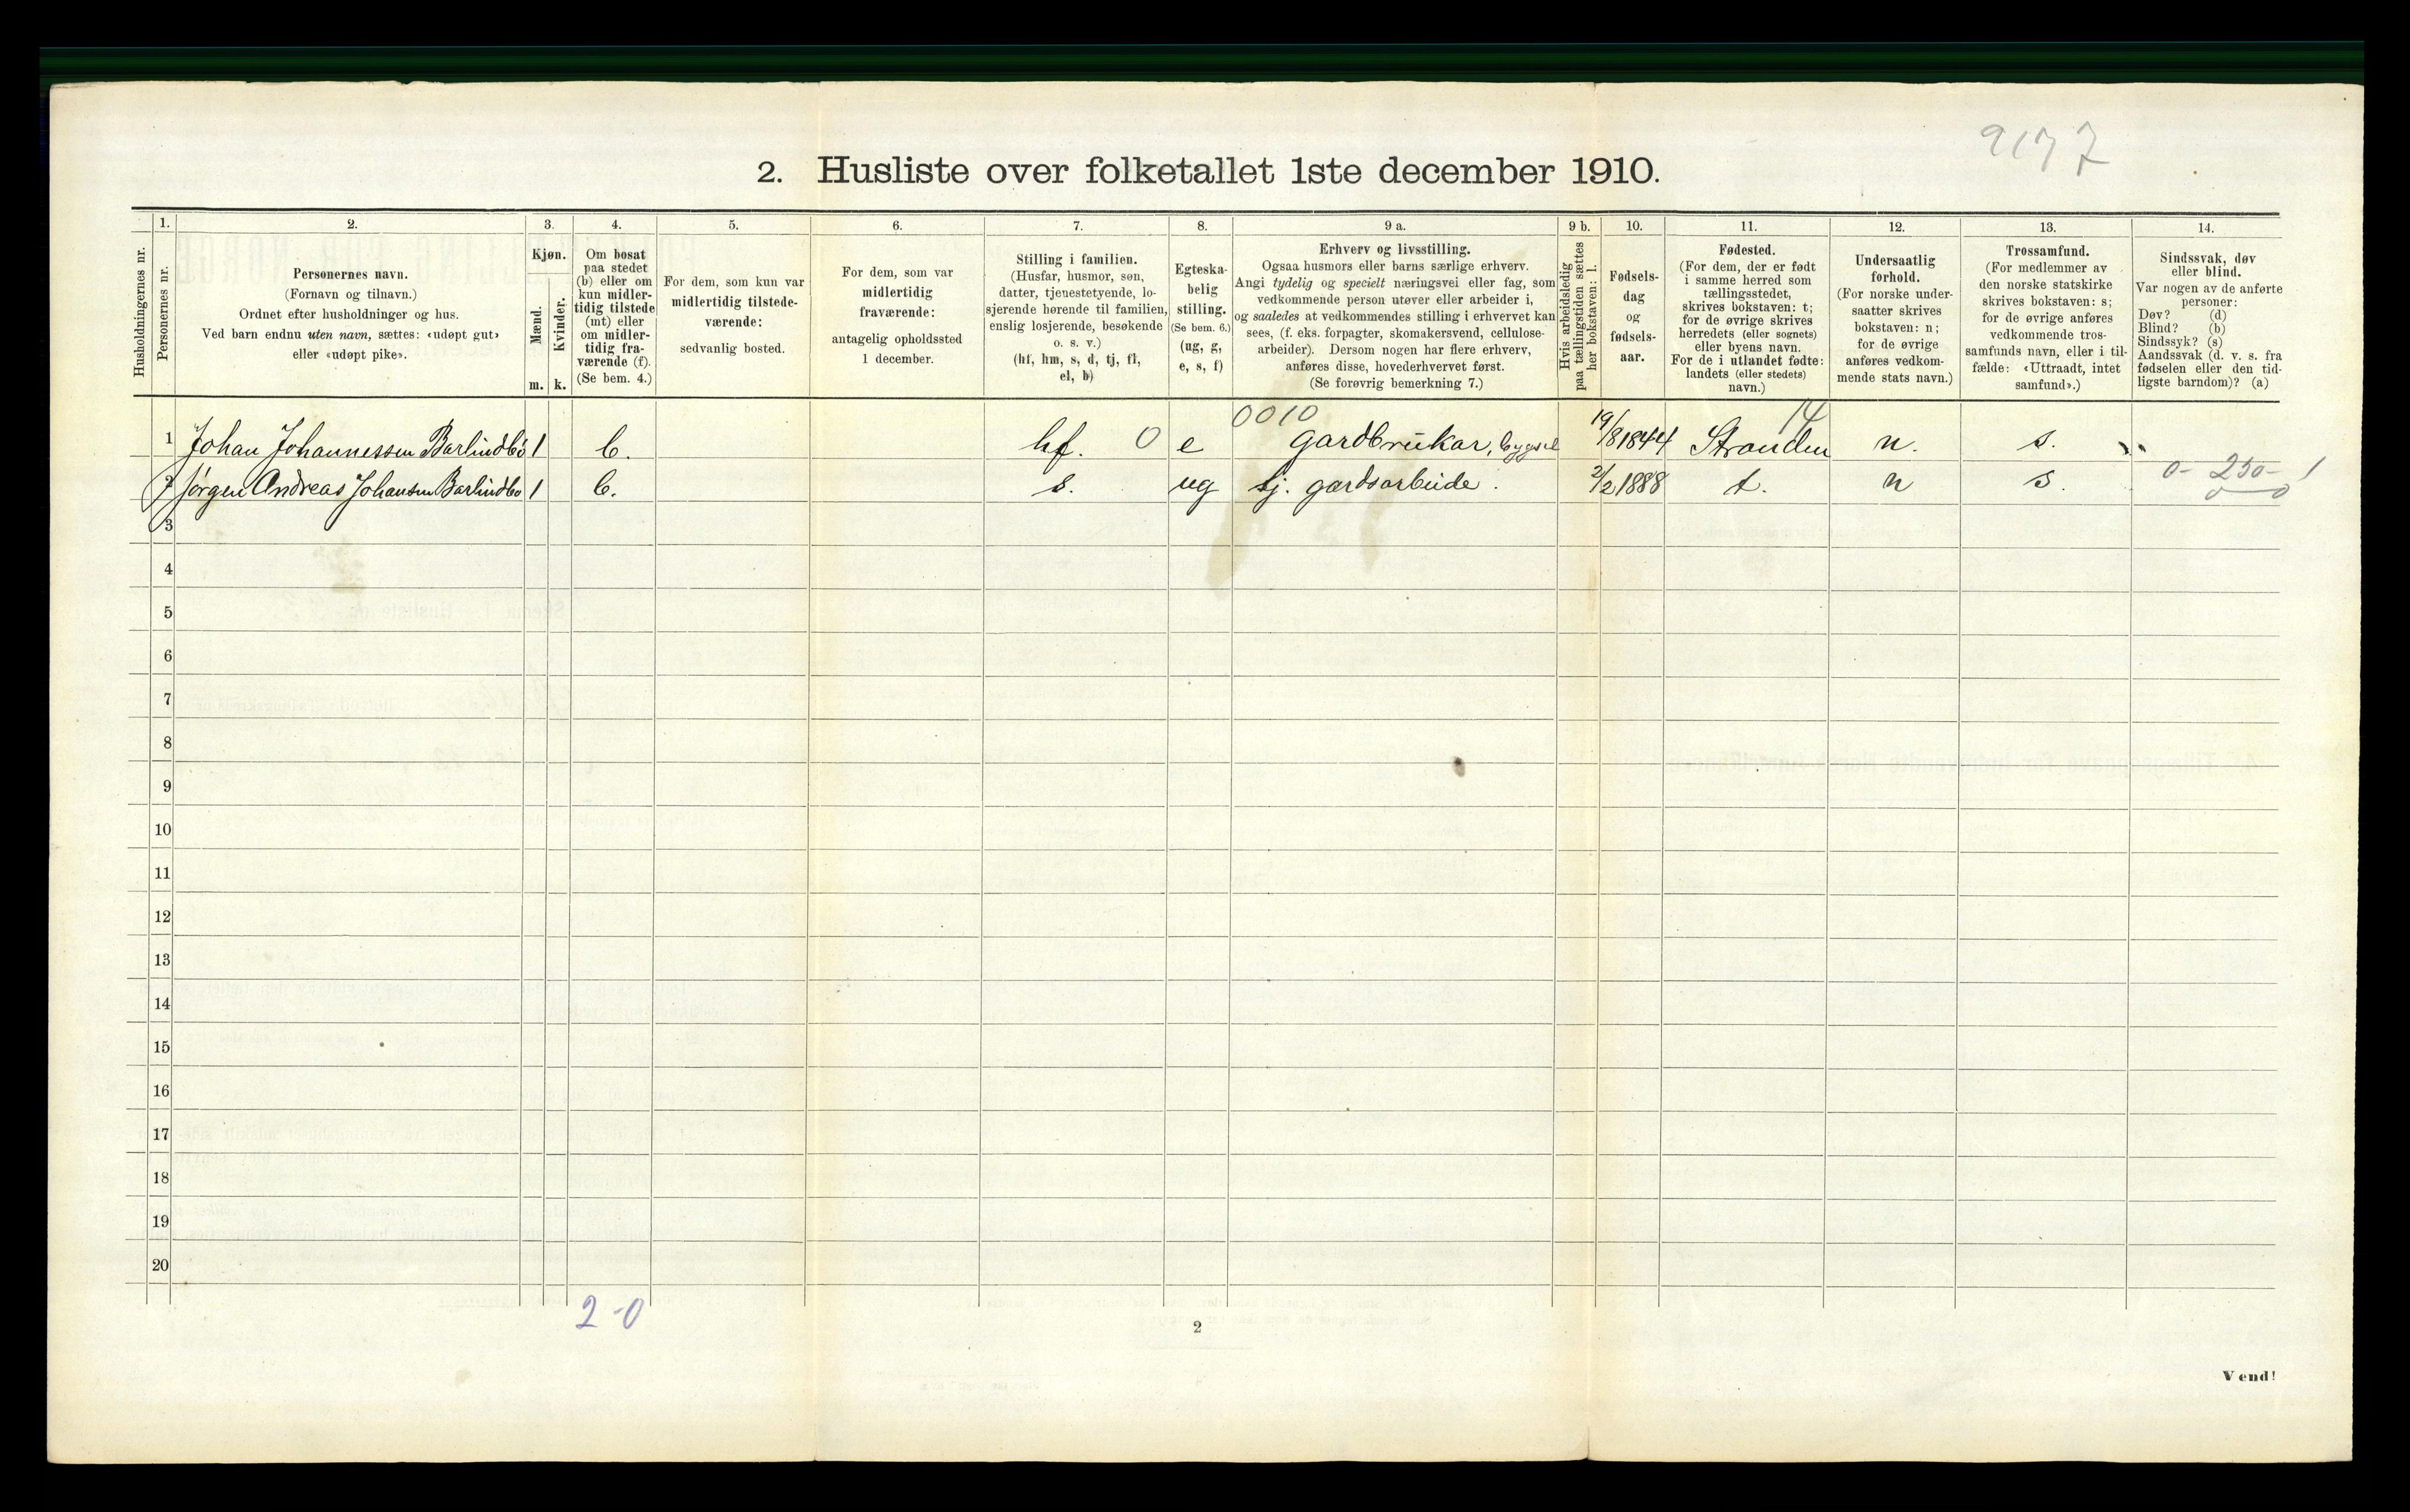 9177
2. Husliste over folketallet 1ste december 1910.
Husholdningernes nr.
1.
Personernes nr.
2.
Personernes navn.
(Fornavn og tilnavn.)
Ordnet efter husholdninger og hus.
Ved barn endnu uten navn, sættes: «udøpt gut»
eller «udøpt pike».
3.
Kjøn.
Mænd.
Kvinder.
m. k.
4.
Om bosat
paa stedet
(b) eller om
kun midler-
tidig tilstede
(mt) eller
om midler-
tidig fra-
værende (f).
(Se bem. 4.)
5.
For dem, som kun var
midlertidig tilstede-
værende:
sedvanlig bosted.
6.
For dem, som var
midlertidig
fraværende:
antagelig opholdssted
1 december.
7.
Stilling i familien.
(Husfar, husmor, søn,
datter, tjenestetyende, lo-
sjerende hørende til familien,
enslig losjerende, besøkende
o. s. v.)
(hf, hm, s, d, tj, fl,
el, b)
8.
Egteska-
belig
stilling.
(Se bem. 6.)
(ug, g,
e, s, f)
9 a.
Erhverv og livsstilling.
Ogsaa husmors eller barns særlige erhverv.
Angi tydelig og specielt næringsvei eller fag, som
vedkommende person utøver eller arbeider i,
og saaledes at vedkommendes stilling i erhvervet kan
sees, (f. eks. forpagter, skomakersvend, cellulose-
arbeider). Dersom nogen har flere erhverv,
anføres disse, hovederhvervet først.
(Se forøvrig bemerkning 7.)
9 b.
Hvis arbeidsledig
paa tællingstiden sættes
her bokstaven: l.
10.
Fødsels-
dag
og
fødsels-
aar.
11.
Fødested.
(For dem, der er født
i samme herred som
tællingsstedet,
skrives bokstaven: t;
for de øvrige skrives
herredets (eller sognets)
eller byens navn.
For de i utlandet fødte:
landets (eller stedets)
navn.)
12.
Undersaatlig
forhold.
(For norske under-
saatter skrives
bokstaven: n;
for de øvrige
anføres vedkom-
mende stats navn.)
13.
Trossamfund.
(For medlemmer av
den norske statskirke
skrives bokstaven: s;
for de øvrige anføres
vedkommende tros-
samfunds navn, eller i til-
fælde: «Uttraadt, intet
samfund».)
14.
Sindssvak, døv
eller blind.
Var nogen av de anførte
personer:
Døv? (d)
Blind? (b)
Sindssyk? (s)
Aandssvak (d. v. s. fra
fødselen eller den tid-
ligste barndom)? (a)
0010 14
1 Johan Johannessen Barlindbö 1 b. hf. 0 e gardbrukar, bygsel 19/8 1844 Stranden n. s.
2 Jørgen Andreas Johansen Barlindbo 1 b. s. ug sj. gardsarbeide. 2/2 1888 t. n s. 0- 250- 1
0 0
3
4
5
6
7
8
9
10
11
12
13
14
15
16
17
18
19
20
2-0
2
Vend!